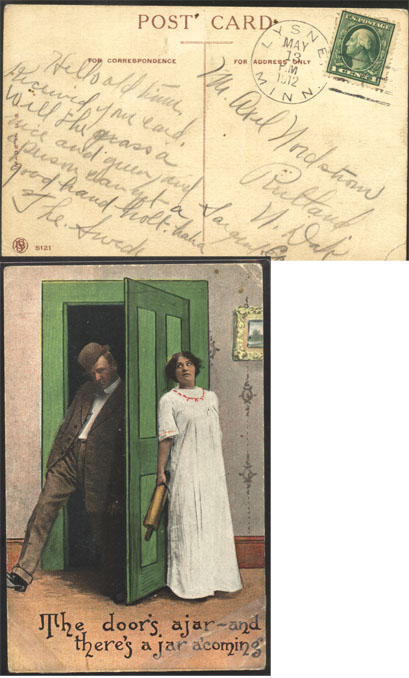 POST CARD
FOR CORRESPONDENCE
FOR ADDRESS ONLY
LYSNE
MAY
13
P.M
1912
MINN.
U.S. POSTAGE
1 CENT 1
Hello old time,
Received your card.
Will the grass a
nice and green and
a person can get a
good hand holt. haha
The Swede
Mr Axel Nordstrom
Rutland
N. Dak
Sargent Co
S121
The door's ajar—and
there's a jar a'coming